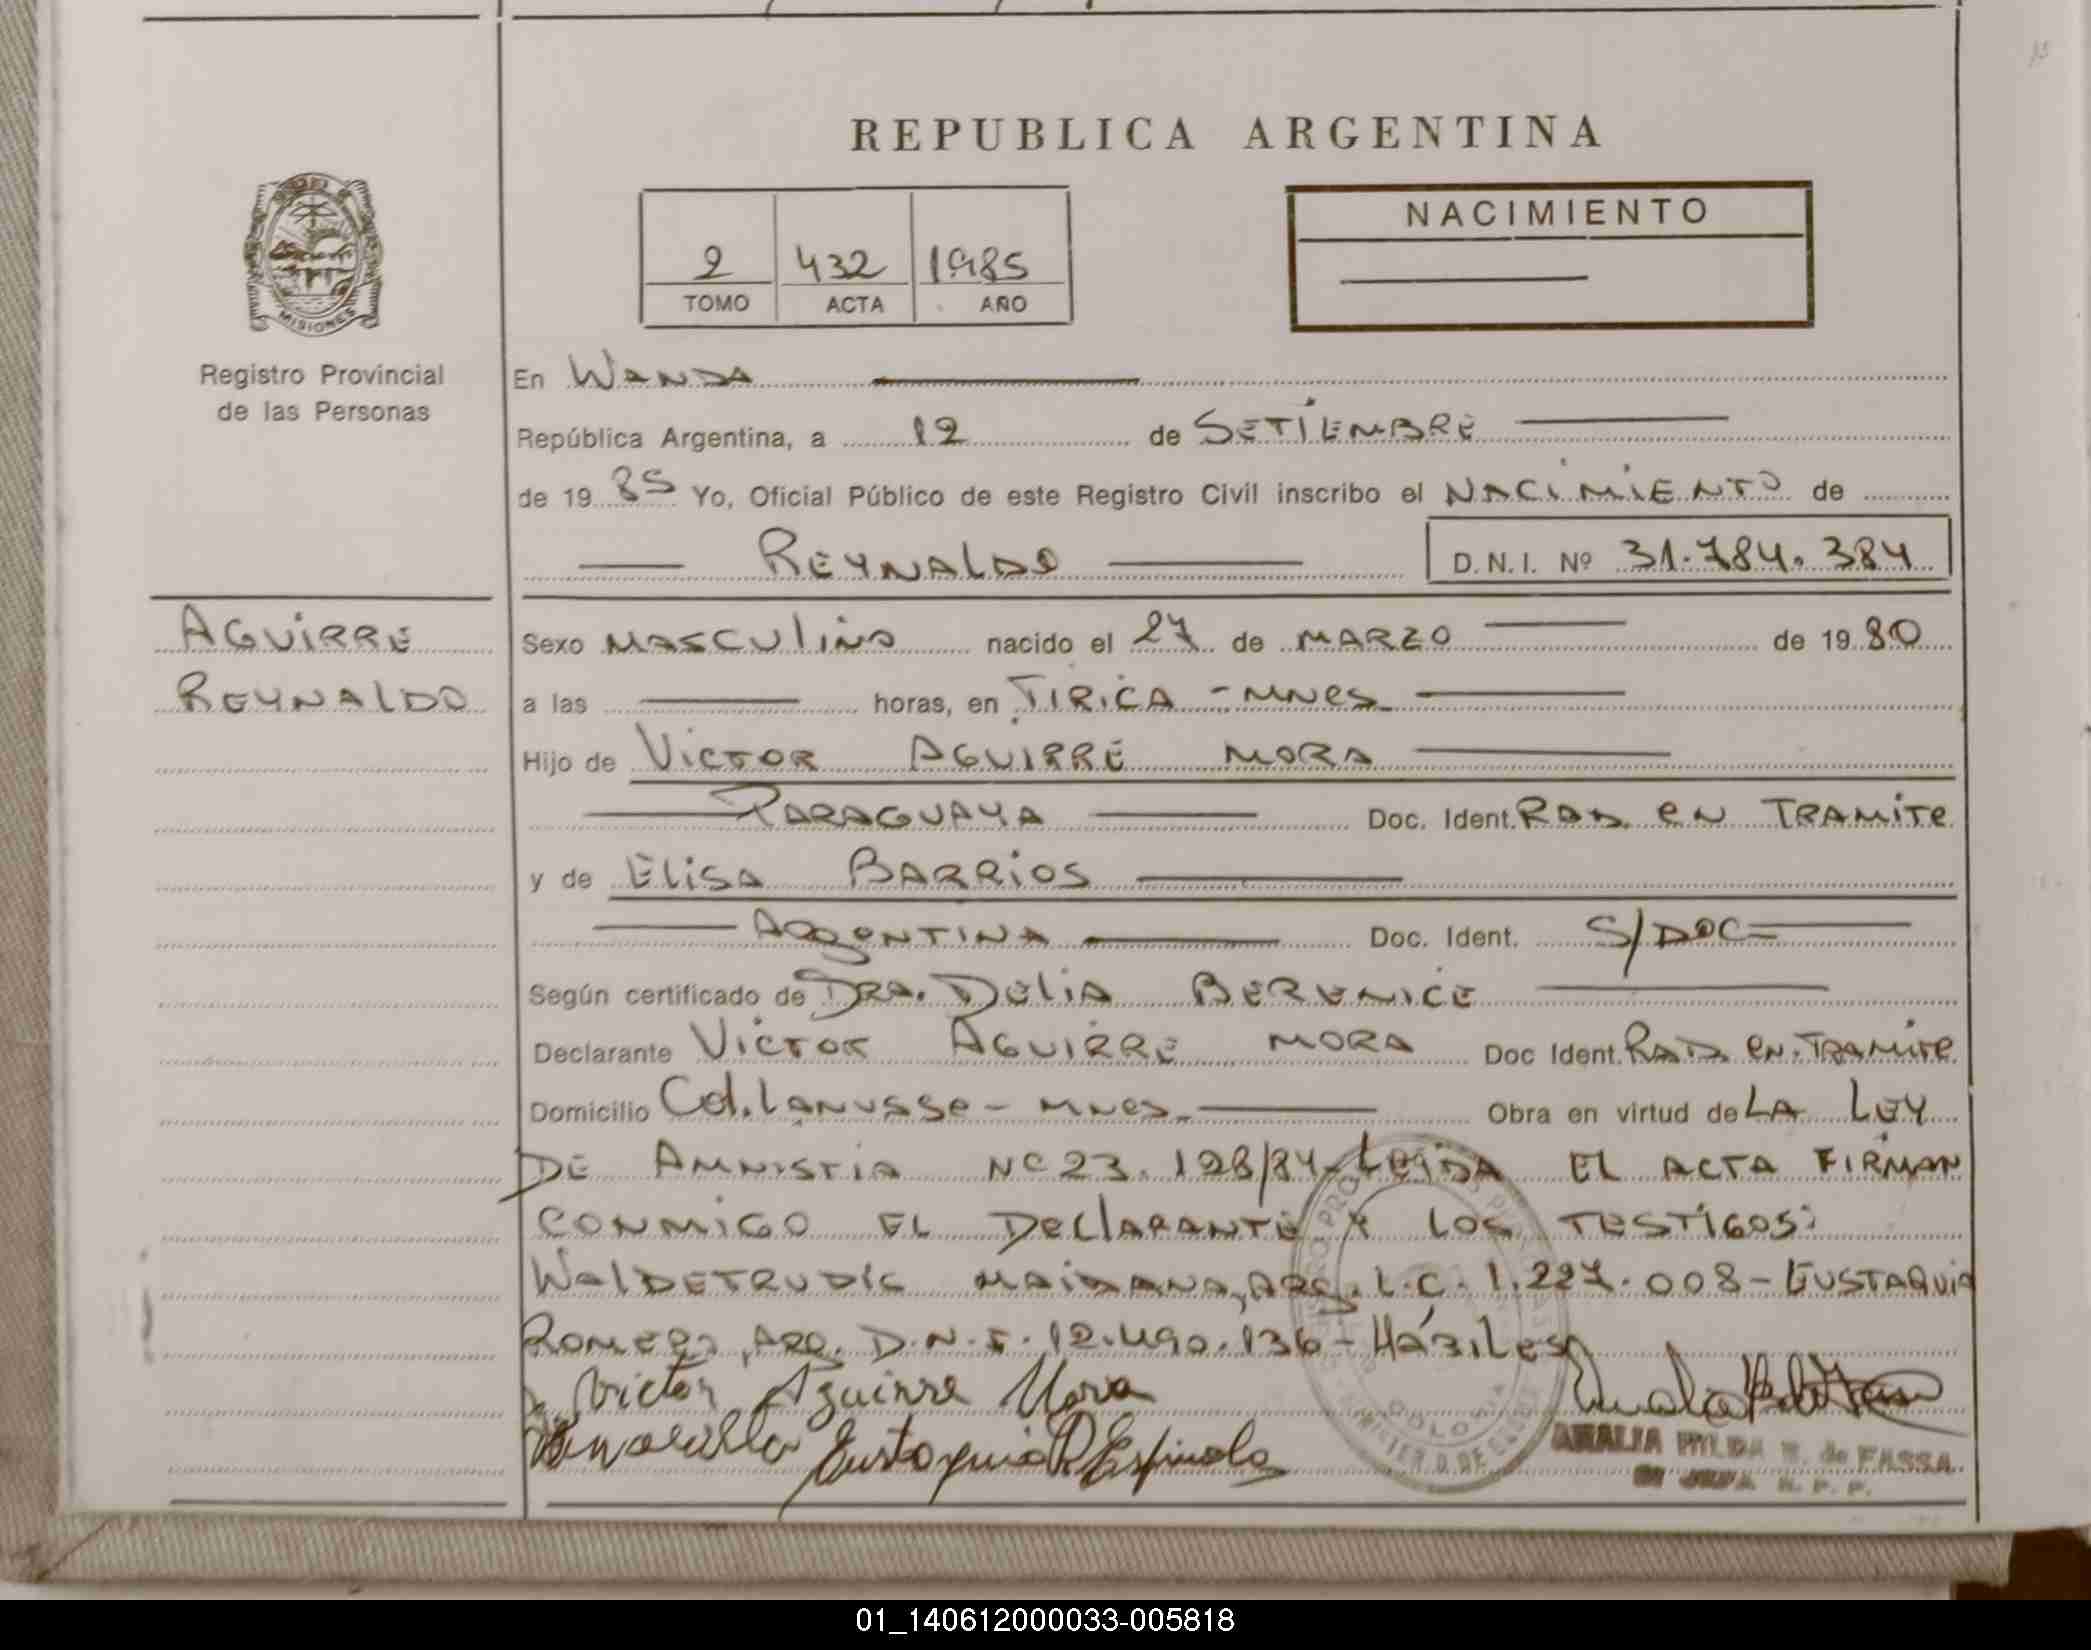 REPUBLICA ARGENTINA
MISIONES
Registro Provincial
de las Personas
2 432 1985
TOMO ACTA AÑO
NACIMIENTO
En WANDA
República Argentina, a 12 de SETIEMBRE
de 19 85 Yo, Oficial Público de este Registro Civil inscribo el NACIMIENTO de
REYNALDO D.N.I. Nº 31.784.384
AGUIRRE
REYNALDO
Sexo MASCULINO nacido el 27 de MARZO de 19 80
a las horas, en TIRICA - MNES
Hijo de VICTOR AGUIRRE MORA
PARAGUAYA Doc. Ident. RAD. EN TRAMITE
y de ELISA BARRIOS
ARGENTINA Doc. Ident. S/DOC
Según certificado de DRA. DELIA BERENICE
Declarante VICTOR AGUIRRE MORA Doc Ident. RAD. EN TRAMITE
Domicilio Col. LANUSSE - MNES. Obra en virtud de LA LEY
DE AMNISTIA Nº 23.128/84 - LEIDA EL ACTA FIRMAN
CONMIGO EL DECLARANTE Y LOS TESTIGOS:
WALDETRUDIS MAIDANA, ARG. L.C. 1.227.008 - EUSTAQUIA
ROMERO, ARG. D.N.I. 12.490.136 - HÁBILES
Victor Aguirre Mora
Eustaquia R Espinola
AMALIA HILDA B. de FASSA
R. P. P.
01_140612000033-005818